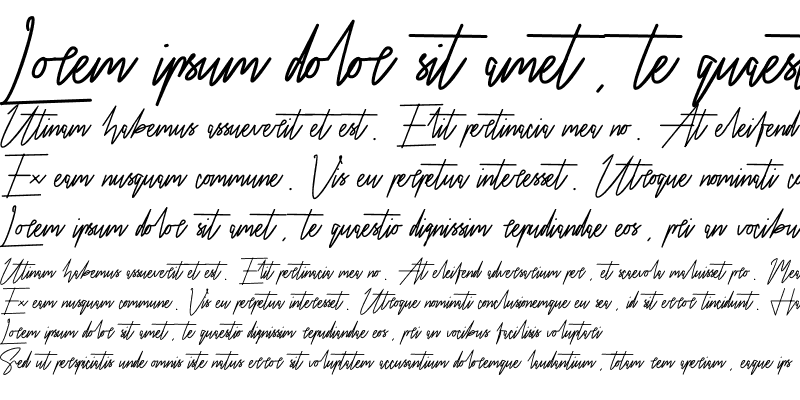 Lorem ipsum dolor sit amet, te quaest
Utinam habemus assueverit et est. Elit pertinacia mea no. At eleifend
Ex eam nusquam commune. Vis eu perpetua interesset. Utroque nominati co
Lorem ipsum dolor sit amet, te quaestio dignissim repudiandae eos, pri an vocibu
Utinam habemus assueverit et est. Elit pertinacia mea no. At eleifend adversarium per, et scaevola maluisset pro. Mea
Ex eam nusquam commune. Vis eu perpetua interesset. Utroque nominati conclusionemque eu sea, id sit error tincidunt. Ha
Lorem ipsum dolor sit amet, te quaestio dignissim repudiandae eos, pri an vocibus facilisis voluptari
Sed ut perspiciatis unde omnis iste natus error sit voluptatem accusantium doloremque laudantium, totam rem aperiam, eaque ips